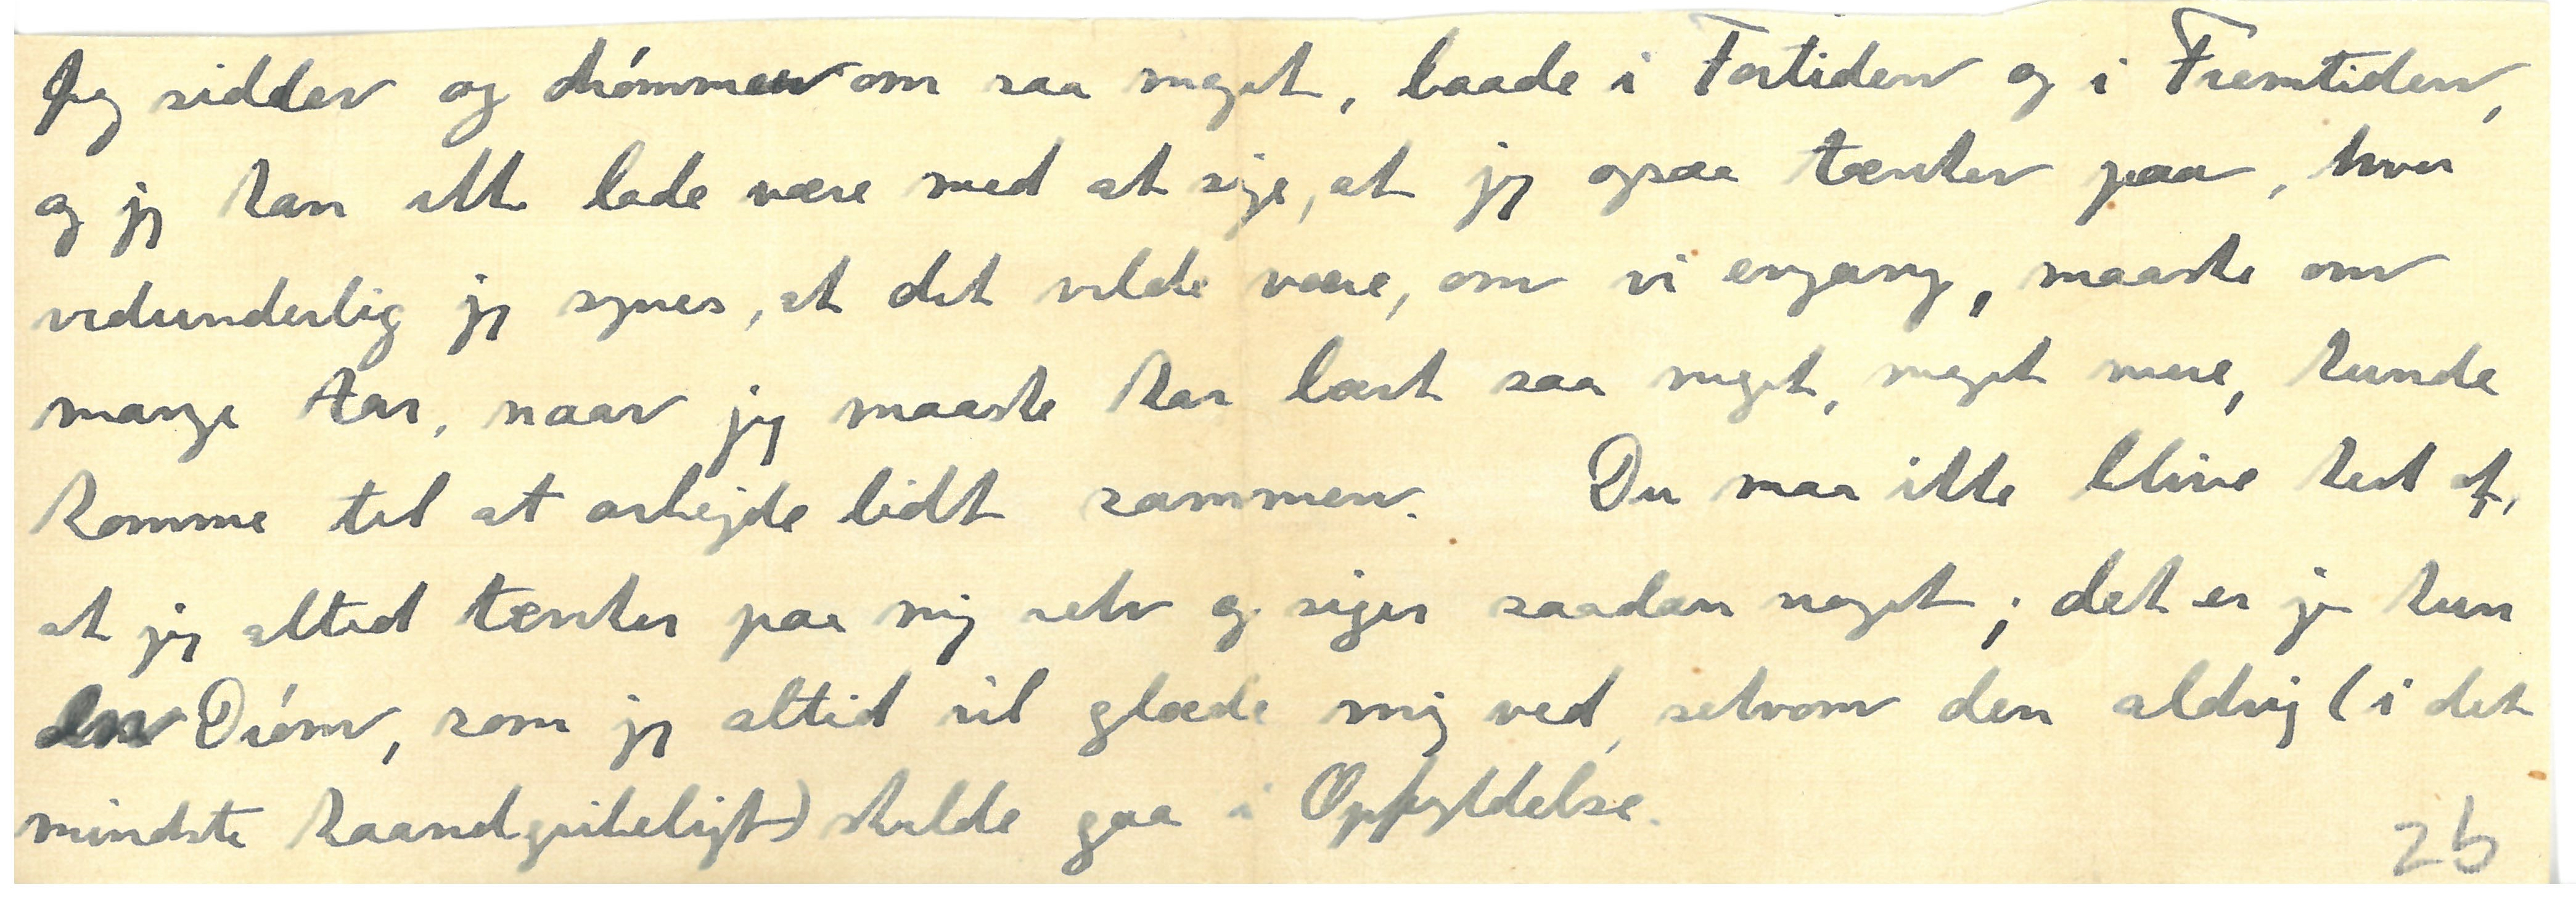 Jeg sidder og drømmer om saa meget, baade i Fortiden og i Fremtiden,
og jeg kan ikke lade være med at sige, at jeg ogsaa tænker paa, hvor
vidunderlig jeg synes, at det vilde være, om vi engang, maaske om
mange Aar, naar jeg maaske har lært saa meget, meget mere, kunde
komme til at arbejde lidt sammen. Du maa ikke blive ked af,
at jeg altid tænker paa mig selv og siger saadan noget; det er jo kun
den Drøm, som jeg altid vil glæde mig ved, selvom den aldrig (i det
mindste haandgribeligt) skulde gaa i Opfyldelse.
26